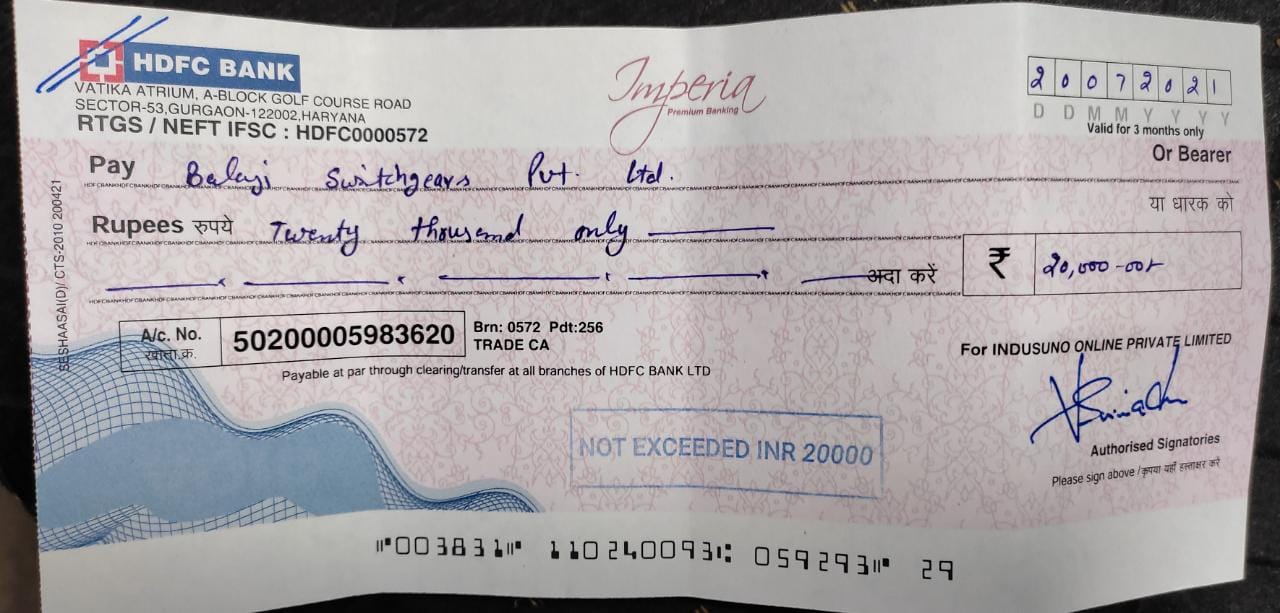 HDFC BANK
VATIKA ATRIUM, A-BLOCK GOLF COURSE ROAD
SECTOR-53,GURGAON-122002,HARYANA
RTGS / NEFT IFSC : HDFC0000572
Imperia
Premium Banking
2 0 0 7 2 0 2 1
D D M M Y Y Y Y
Valid for 3 months only
Pay Balaji Switchgears Pvt. Ltd. Or Bearer
या धारक को
Rupees रुपये Twenty thousand only
अदा करें ₹ 20,000-00/-
A/c. No.
खाता.क्र.
50200005983620
Brn: 0572 Pdt:256
TRADE CA
Payable at par through clearing/transfer at all branches of HDFC BANK LTD
For INDUSUNO ONLINE PRIVATE LIMITED
NOT EXCEEDED INR 20000
Authorised Signatories
Please sign above /कृपया यहाँ हस्ताक्षर करें
⑈003831⑈ 110240093⑆ 059293⑈ 29